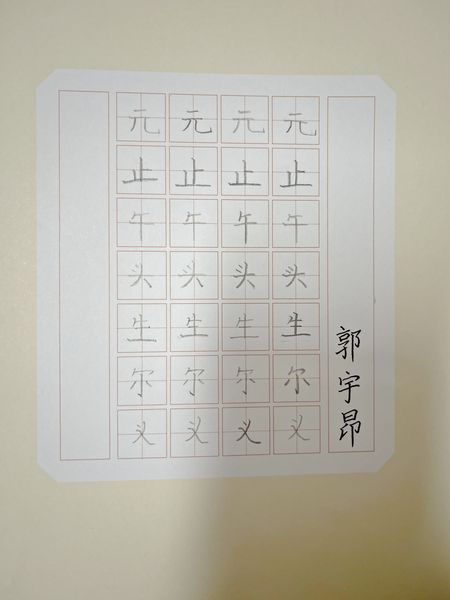 元元元元
止止止止
午午午午
头头头头
生生生生
尔尔尔尔
义义义义
郭宇昂